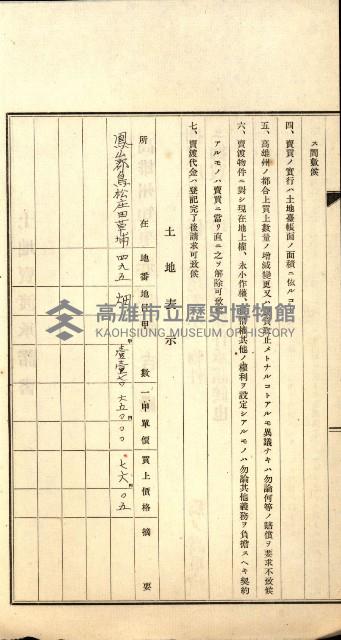 ス間敷候
四、賣買ノ實行ハ土地臺帳面ノ面積ニ依ルコ
五、高雄州ノ都合上買上數量ノ增減變更又ハ
止メトナルコトアルモ異議ナキハ勿論何等ノ賠償ヲ要求不致候
六、賣渡物件ニ對シ現在地上權、永小作權、
其他ノ權利ヲ設定シアルモノハ勿論其他義務ヲ負擔スヘキ契約
アルモノハ賣買ニ當リ直ニ之ヲ解除可致
七、賣渡代金ハ登記完了後請求可致候
土地表示
所在 地番 地目 甲數 一甲單價 買上價格 摘要
鳳山郡鳥松庄田草埔 四九五 畑 壹壹七〇 六五〇〇〇 七六〇五
高雄市立歷史博物館
KAOHSIUNG MUSEUM OF HISTORY